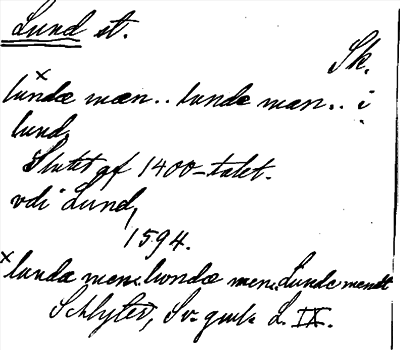 Lund st.
Sk.
lundæ mæn.. lundæ mæn.. i
lund,
Slutet af 1400-talet.
vdi Lund,
1594.
x lundæ men. londæ men. Lunde mendt
Schlyter, Sv. gml. L. IX.